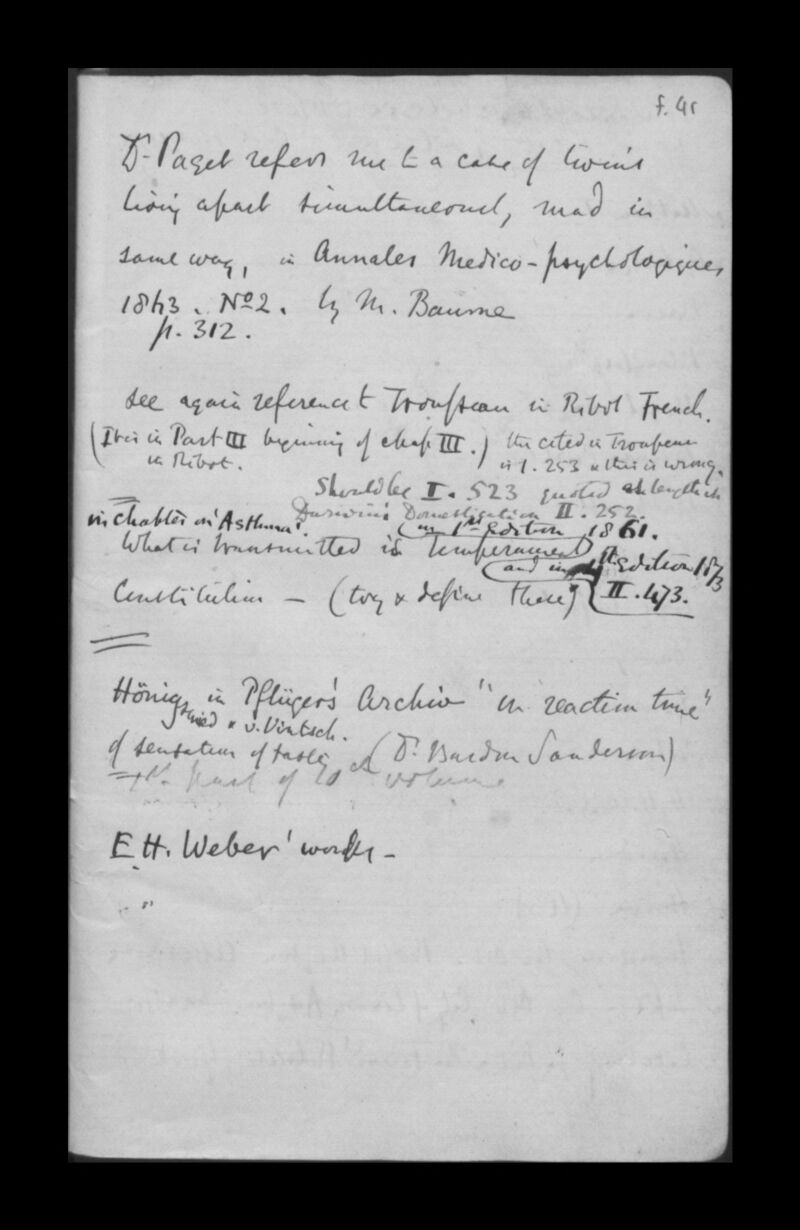 f. 4r
Dr Paget refers me to a case of twins
living apart simultaneously mad in
same way, in Annales Medico-psychologiques
1863. No 2. by M. Baume
p. 312.
see again reference to Trousseau in Ribot French.
(It is in Part III beginning of chap III.) the cited in Trousseau
in Ribot. is 1. 253 & this is wrong.
Should be I. 523 quoted at length in
Darwin's Domestication II. 252.
in Chapter on 'Asthma'. in 1st Edition 1861.
What is transmitted is temperament
and in Edition 1873
Constitution — (try & define these) II. 473.
Hönig in Pflüger's Archiv "on reaction time"
schmied & v. Vintsch.
of sensation of taste (Dr Burdon Sanderson)
part of 10th volume
E H. Weber' works -